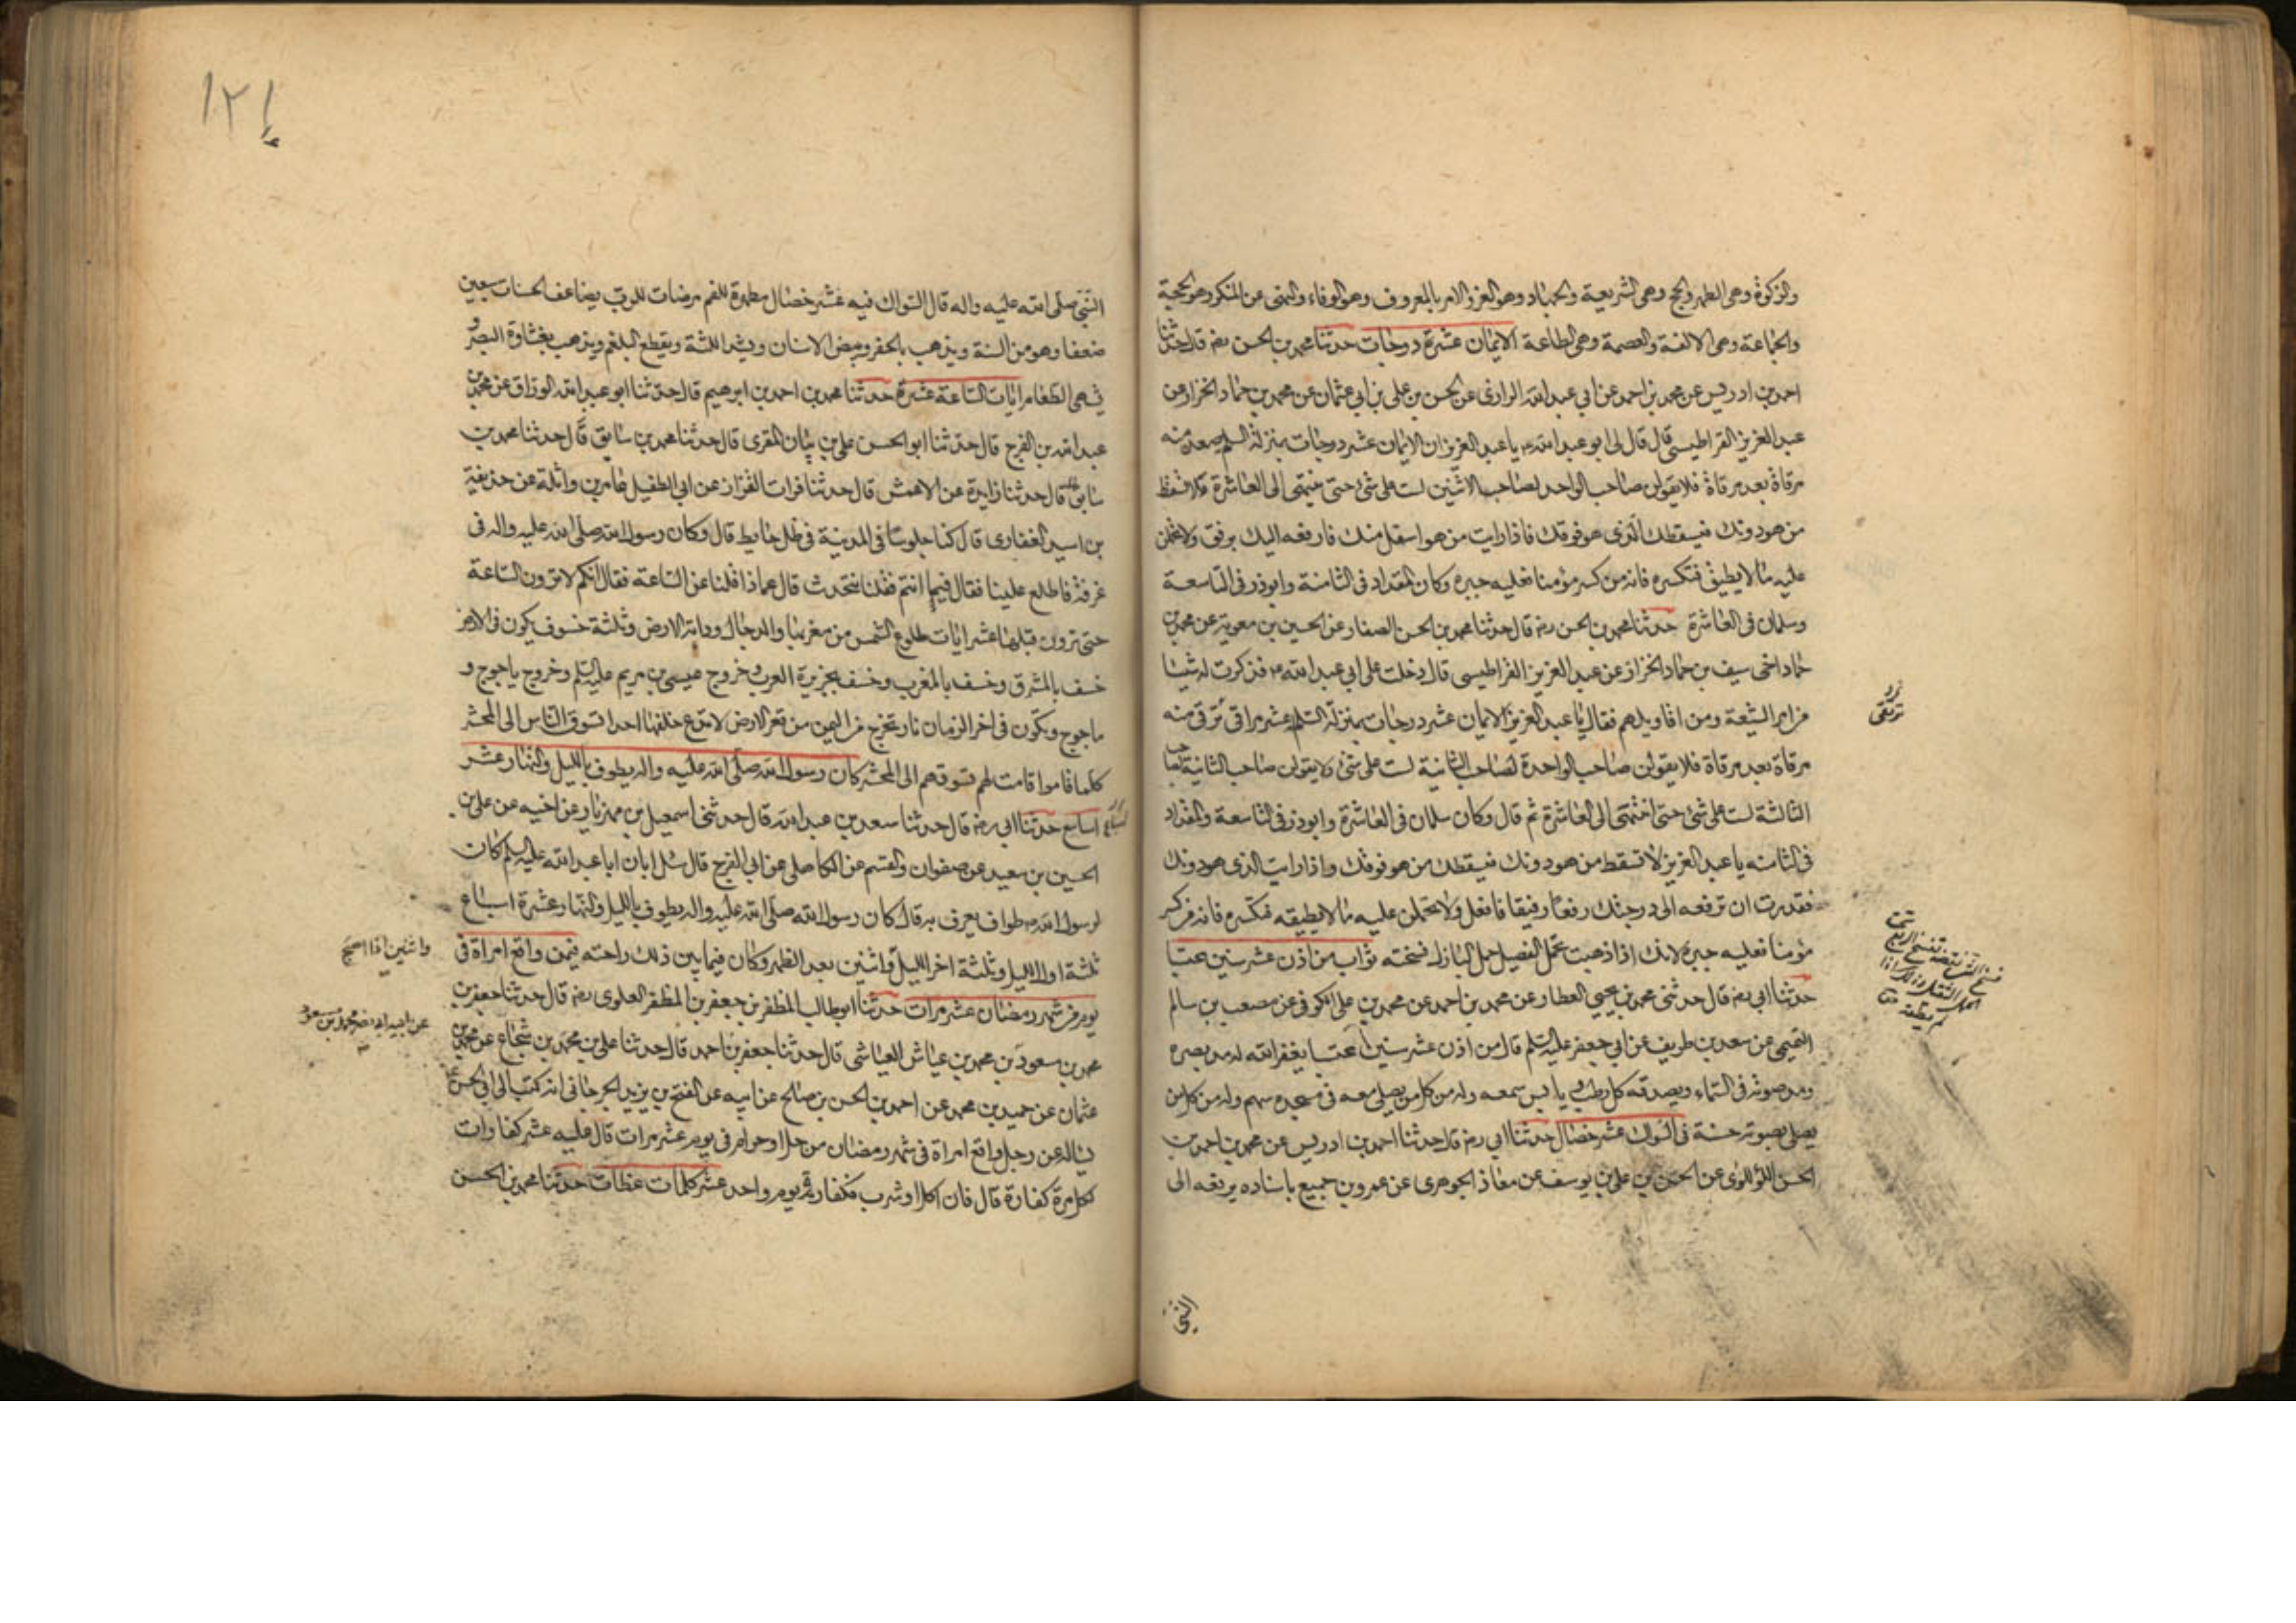 والزكوة وهى الطهر والحج وهى الشريعة والجهاد وهو العز والامر بالمعروف وهو الوفاء والنهى عن المنكر وهو الحجة
والجماعة وهى الالفة والعصمة وهى الطاعة الايمان عشرة درجات حدثنا محمد بن الحسن رضه قال حدثنا
احمد بن ادريس عن محمد بن احمد عن ابي عبد الله الرازى عن الحسن بن على بن ابي عثمان عن محمد بن حماد الخزاز عن
عبد العزيز القراطيسى قال قال لى ابو عبد الله ع يا عبد العزيز ان الايمان عشر درجات بمنزلة السلم يصعد منه
مرقاة بعد مرقاة فلا يقولن صاحب الواحد لصاحب الاثنين لست على شئ حتى ينتهى الى العاشرة فلا تسقط
من هو دونك فيسقطك الذى هو فوقك فاذا رايت من هو اسفل منك فارفعه اليك برفق ولا تحملن
عليه ما لا يطيق فتكسره فانه من كسر مؤمنا فعليه جبره وكان المقداد فى الثامنة وابوذر فى التاسعة
وسلمان فى العاشرة حدثنا محمد بن الحسن رضه قال حدثنا محمد بن الحسن الصفار عن الحسين بن معوية عن محمد بن
حماد اخى سيف بن حماد الخزاز عن عبد العزيز القراطيسى قال دخلت على ابي عبد الله ع فذكرت له شيئا
من امر الشيعة ومن اقاويلهم فقال يا عبد العزيز الايمان عشر درجات بمنزلة السلم عشر مراقى ترقى منه
مرقاة بعد مرقاة فلا يقولن صاحب الواحدة لصاحب الثانية لست على شئ ولا يقولن صاحب الثانية لصاحب
الثالثة لست على شئ حتى انتهى الى العاشرة ثم قال وكان سلمان فى العاشرة وابوذر فى التاسعة والمقداد
فى الثامنه يا عبد العزيز لا تسقط من هو دونك فيسقطك من هو فوقك واذا رايت الذى هو دونك
فقدرت ان ترفعه الى درجتك رفعا رفيقا فافعل ولا تحملن عليه ما لا يطيقه فتكسره فانه من كسر
مؤمنا فعليه جبره لانك اذا ذهبت تحمل الفصيل حمل البازل فسخته ثواب من اذن عشر سنين محتسبا
حدثنا ابي رضه قال حدثنى محمد بن يحيى العطار عن محمد بن احمد عن محمد بن على الكوفى عن مصعب بن سالم
التميمى عن سعد بن طريف عن ابي جعفر عليه السلم قال من اذن عشر سنين محتسبا يغفر الله له مد بصره
ومد صوته فى السماء ويصدقه كل رطب و يابس سمعه وله من كل من يصلى معه فى مسجده سهم وله من كل من
يصلى بصوته حسنة فى السواك عشر خصال حدثنا ابي رضه قال حدثنا احمد بن ادريس عن محمد بن احمد بن
الحسن اللؤلؤى عن الحسن بن على بن يوسف عن معاذ الجوهرى عن عمرو بن جميع باسناده يرفعه الى
ترتقى
النبى
١٢١
النبى صلى الله عليه واله قال السواك فيه عشر خصال مطهرة للفم مرضات للرب يضاعف الحسنات سبعين
ضعفا وهو من السنة ويذهب بالحفر ويبيض الاسنان ويشد اللثة ويقطع البلغم ويذهب بغشاوة البصر و
يشهى الطعام ايات الساعة عشرة حدثنا محمد بن احمد بن ابرهيم قال حدثنا ابو عبد الله الوراق عن محمد بن
عبد الله بن الفرج قال حدثنا ابو الحسن على بن بنان المقرى قال حدثنا محمد بن سابق قال حدثنا محمد بن
سابق قال حدثنا زايدة عن الاعمش قال حدثنا فرات القزاز عن ابي الطفيل عامر بن واثلة عن حذيفة
بن اسيد الغفارى قال كنا جلوسا فى المدينة فى ظل حايط قال وكان رسول الله صلى الله عليه واله فى
غرفة فاطلع علينا فقال فيما انتم فقلنا نتحدث قال عماذا قلنا عن الساعة فقال انكم لا ترون الساعة
حتى ترون قبلها عشر ايات طلوع الشمس من مغربها والدجال ودابة الارض وثلثة خسوف يكون فى الارض
خسف بالمشرق وخسف بالمغرب وخسف بجزيرة العرب وخروج عيسى بن مريم عليه السلم وخروج ياجوج و
ماجوج وتكون فى اخر الزمان نار تخرج من اليمن من قعر الارض لا تدع خلفها احدا تسوق الناس الى المحشر
كلما قاموا قامت لهم تسوقهم الى المحشر كان رسول الله صلى الله عليه واله يطوف بالليل والنهار عشر
اسابيع حدثنا ابي رضه قال حدثنا سعد بن عبد الله قال حدثنى اسمعيل بن مهزيار عن اخيه عن على بن
الحسين بن سعيد عن صفوان والقسم عن الكاهلى عن ابي الفرج قال سئل ابان ابا عبد الله عليه السلم كان
لرسول الله ص طواف يعرف به قال كان رسول الله صلى الله عليه واله يطوف بالليل والنهار عشرة اسباع
ثلثة اول الليل وثلثة اخر الليل واثنين بعد الظهر وكان فيما بين ذلك راحته فيمن واقع امراة فى
يوم من شهر رمضان عشر مرات حدثنا ابو طالب المظفر بن جعفر بن المظفر العلوى رضه قال حدثنا جعفر بن
محمد بن مسعود بن محمد بن عياش العياشى قال حدثنا جعفر بن احمد قال حدثنا على بن محمد بن شجاع عن محمد بن
عثمان عن حميد بن محمد عن احمد بن الحسن بن صالح عن ابيه عن الفتح بن يزيد الجرجانى انه كتب الى ابي الحسن ع
يساله عن رجل واقع امراة فى شهر رمضان من حلال او حرام فى يوم عشر مرات قال عليه عشر كفارات
لكل مرة كفارة قال فان اكل او شرب فكفارة يوم واحد عشر كلمات عظات حدثنا محمد بن الحسن
واثنين اذا اصبح
عن ابيه ابى نضر محمد بن مسعود